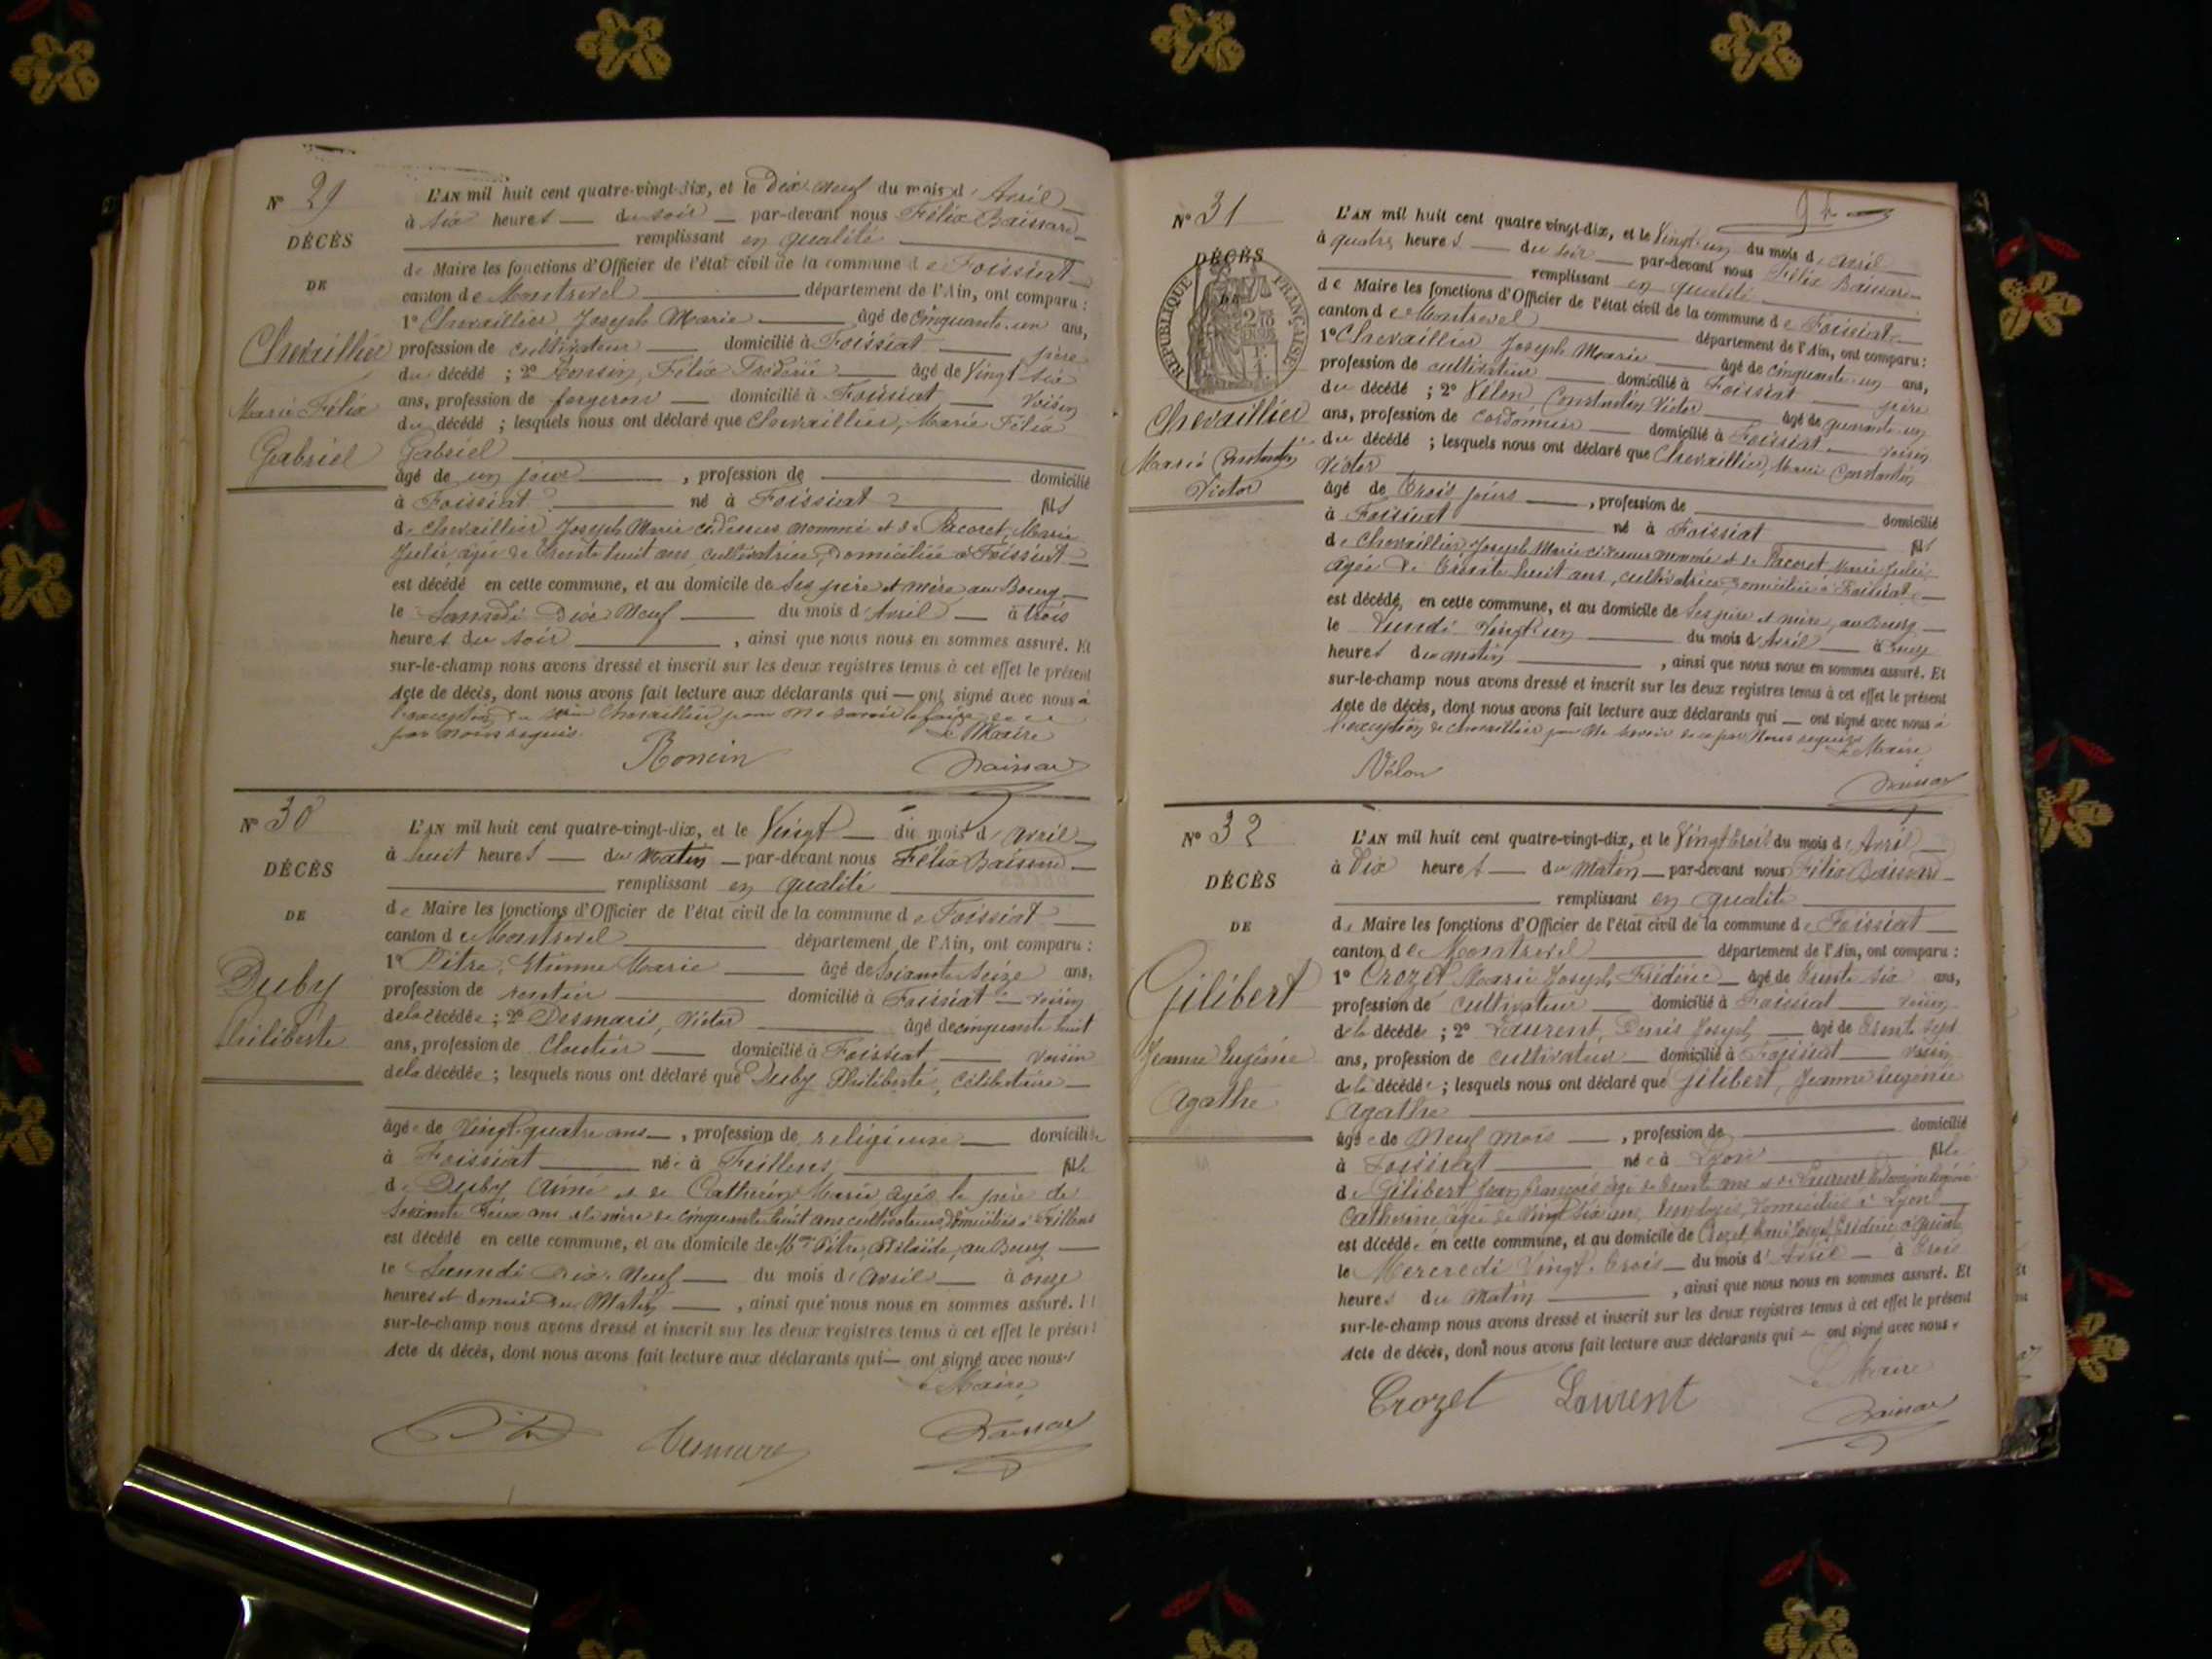 N° 29
DÉCÈS
DE
Chevaillier
Marie Félix
Gabriel
L'AN mil huit cent quatre-vingt-dix, et le Dix-neuf du mois d'Avril
à six heures du soir par-devant nous Félix Baissard
remplissant en qualité
de Maire les fonctions d'Officier de l'état civil de la commune de Foissiat
canton de Montrevel département de l'Ain, ont comparu :
1° Chevaillier Joseph Marie âgé de Cinquante-un ans,
profession de cultivateur domicilié à Foissiat père
du décédé ; 2° Ronsin, Félix Frédéric âgé de Vingt six
ans, profession de forgeron domicilié à Foissiat voisin
du décédé ; lesquels nous ont déclaré que Chevaillier, Marie Félix
Gabriel
âgé de un jour, profession de domicilié
à Foissiat né à Foissiat fils
de Chevaillier Joseph Marie ci-dessus nommé et de Pacoret, Marie
Julie, âgée de trente huit ans, cultivatrice, domiciliée à Foissiat
est décédé en cette commune, et au domicile de ses père et mère au Bourg
le Samedi Dix Neuf du mois d'Avril à trois
heures du soir, ainsi que nous nous en sommes assuré. Et
sur-le-champ nous avons dressé et inscrit sur les deux registres tenus à cet effet le présent
Acte de décès, dont nous avons fait lecture aux déclarants qui ont signé avec nous à
l'exception du père Chevaillier pour ne savoir le faire de ce
par nous requis. Le Maire
Ronsin Baissard
N° 30
DÉCÈS
DE
Duby
Philiberte
L'AN mil huit cent quatre-vingt-dix, et le Vingt du mois d'avril
à huit heures du Matin par-devant nous Félix Baissard
remplissant en qualité
de Maire les fonctions d'Officier de l'état civil de la commune de Foissiat
canton de Montrevel département de l'Ain, ont comparu :
1° Pitre, Etienne Marie âgé de Soixante Seize ans,
profession de rentier domicilié à Foissiat voisin
de la décédée ; 2° Desmaris, Victor âgé de cinquante huit
ans, profession de Cloutier domicilié à Foissiat voisin
de la décédée ; lesquels nous ont déclaré que Duby Philiberte, Célibataire
âgée de Vingt-quatre ans, profession de religieuse domiciliée
à Foissiat née à Feillens fille
de Duby Aimé et de Catherin Marie âgés le père de
Soixante deux ans et la mère de cinquante huit ans cultivateurs, domiciliés à Feillens
est décédé en cette commune, et au domicile de Mme Pitre, Adélaïde, au Bourg
le Samedi Dix-Neuf du mois d'avril à onze
heures et demie du Matin, ainsi que nous nous en sommes assuré. Et
sur-le-champ nous avons dressé et inscrit sur les deux registres tenus à cet effet le présent
Acte de décès, dont nous avons fait lecture aux déclarants qui ont signé avec nous
Le Maire
Baissard
N° 31
DÉCÈS
DE
RÉPUBLIQUE FRANÇAISE
Chevaillier
Marie Constantin
Victor
L'AN mil huit cent quatre vingt-dix, et le Vingt-un du mois d'avril
à quatre heures du soir par-devant nous Félix Baissard
remplissant en qualité
de Maire les fonctions d'Officier de l'état civil de la commune de Foissiat
canton de Montrevel département de l'Ain, ont comparu :
1° Chevaillier Joseph Marie âgé de cinquante-un ans,
profession de cultivateur domicilié à Foissiat père
du décédé ; 2° Vélon Constantin Victor âgé de quarante-un
ans, profession de Cordonnier domicilié à Foissiat voisin
du décédé ; lesquels nous ont déclaré que Chevaillier, Marie Constantin
Victor
âgé de Trois jours, profession de domicilié
à Foissiat né à Foissiat fils
de Chevaillier, Joseph Marie ci-dessus nommé et de Pacoret Marie Julie
âgée de Trente huit ans, cultivatrice, domiciliée à Foissiat
est décédé, en cette commune, et au domicile de Ses père et mère, au Bourg
le Lundi Vingt-un du mois d'Avril à
heures du matin, ainsi que nous nous en sommes assuré. Et
sur-le-champ nous avons dressé et inscrit sur les deux registres tenus à cet effet le présent
Acte de décès, dont nous avons fait lecture aux déclarants qui ont signé avec nous à
l'exception de Chevaillier pour ne savoir de ce par Nous requis. Le Maire
Vélon Baissard
N° 32
DÉCÈS
DE
Gilibert
Jeanne Eugénie
Agathe
L'AN mil huit cent quatre-vingt-dix, et le Vingt trois du mois d'Avril
à Dix heures du Matin par-devant nous Félix Baissard
remplissant en qualité
de Maire les fonctions d'Officier de l'état civil de la commune de Foissiat
canton de Montrevel département de l'Ain, ont comparu :
1° Crozet Marie Joseph Frédéric âgé de Trente six ans,
profession de Cultivateur domicilié à Foissiat voisin
de la décédée ; 2° Laurent, Denis Joseph âgé de Trente sept
ans, profession de Cultivateur domicilié à Foissiat voisin
de la décédée ; lesquels nous ont déclaré que Gilibert, Jeanne Eugénie
Agathe
âgée de Neuf Mois, profession de domicilié
à Foissiat née à Lyon fille
de Gilibert Jean François âgé de trente ans et de Laurent
Catherine, âgée de Vingt six ans, employés, domiciliés à Lyon
est décédée en cette commune, et au domicile de Crozet Marie Joseph Frédéric
le Mercredi Vingt-trois du mois d'Avril à trois
heures du Matin, ainsi que nous nous en sommes assuré. Et
sur-le-champ nous avons dressé et inscrit sur les deux registres tenus à cet effet le présent
Acte de décès, dont nous avons fait lecture aux déclarants qui ont signé avec nous
Le Maire
Crozet Laurent Baissard